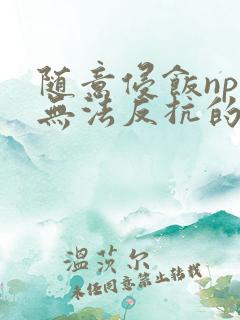 随意侵飯np
無法反抗的
溫茨尔
未经同意禁止转载